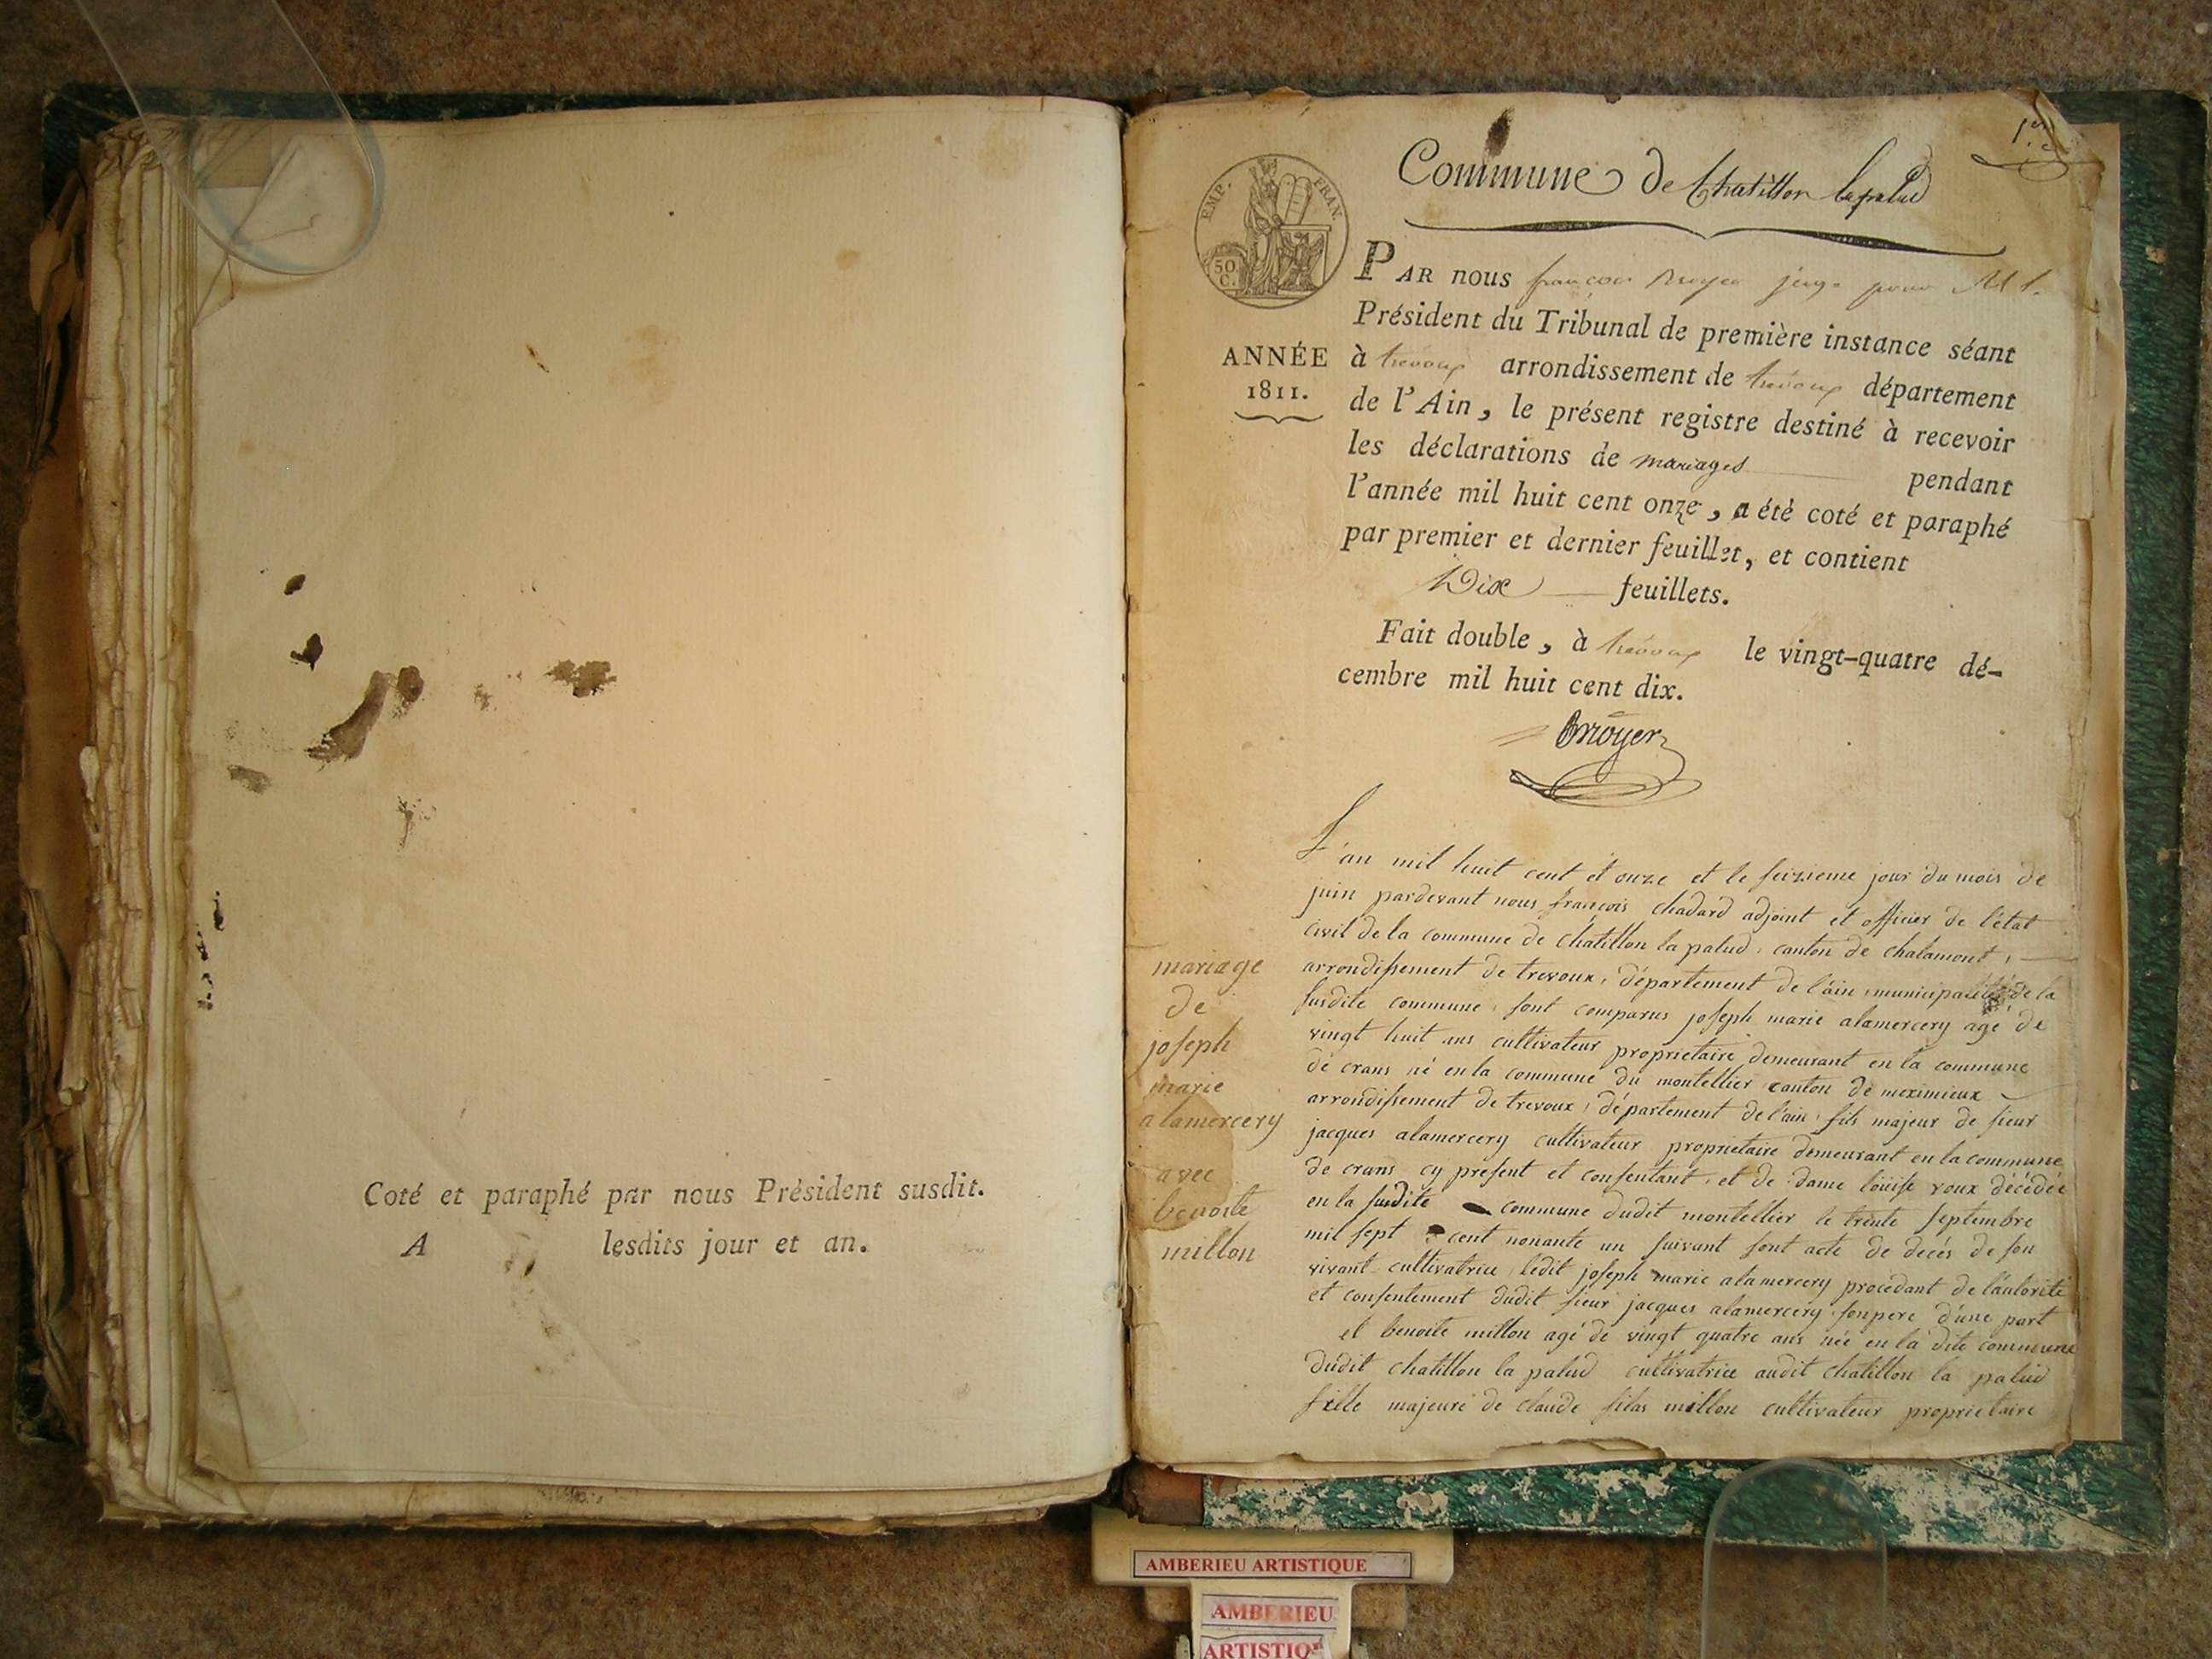 Coté et paraphé par nous Président susdit.
A lesdits jour et an.
1er
Commune de Chatillon lapalud
EMP. FRAN.
50 C.
ANNÉE
1811.
PAR nous françois Broyer juge pour M. le
Président du Tribunal de première instance séant
à trevoux arrondissement de trevoux département
de l'Ain, le présent registre destiné à recevoir
les déclarations de mariages pendant
l'année mil huit cent onze, a été coté et paraphé
par premier et dernier feuillet, et contient
Dix feuillets.
Fait double, à trévoux le vingt-quatre dé-
cembre mil huit cent dix.
Broyer
mariage
de
joseph
marie
alamercery
avec
benoite
millon
L'an mil huit cent et onze et le seizieme jour du mois de
juin pardevant nous françois chadard adjoint et officier de l'état
civil de la commune de chatillon la palud, canton de chalamont,
arrondissement de trevoux, département de l'ain, municipalité de la
susdite commune, sont comparus joseph marie alamercery agé de
vingt huit ans cultivateur proprietaire demeurant en la commune
de crans né en la commune du montellier canton de meximieux
arrondissement de trevoux, département de l'ain, fils majeur de sieur
jacques alamercery cultivateur proprietaire demeurant en la commune
de crans cy present et consentant, et de dame loüise roux décédée
en la susdite commune dudit montellier le trente septembre
mil sept cent nonante un suivant sont acte de decés de son
vivant cultivatrice, ledit joseph marie alamercery procedant de l'autorité
et consentement dudit sieur jacques alamercery son pere d'une part
et benoite millon agé de vingt quatre ans née en la dite commune
dudit chatillon la palud cultivatrice audit chatillon la palud
fille majeure de claude silas millon cultivateur proprietaire
AMBERIEU ARTISTIQUE
AMBERIEU
ARTISTIQU